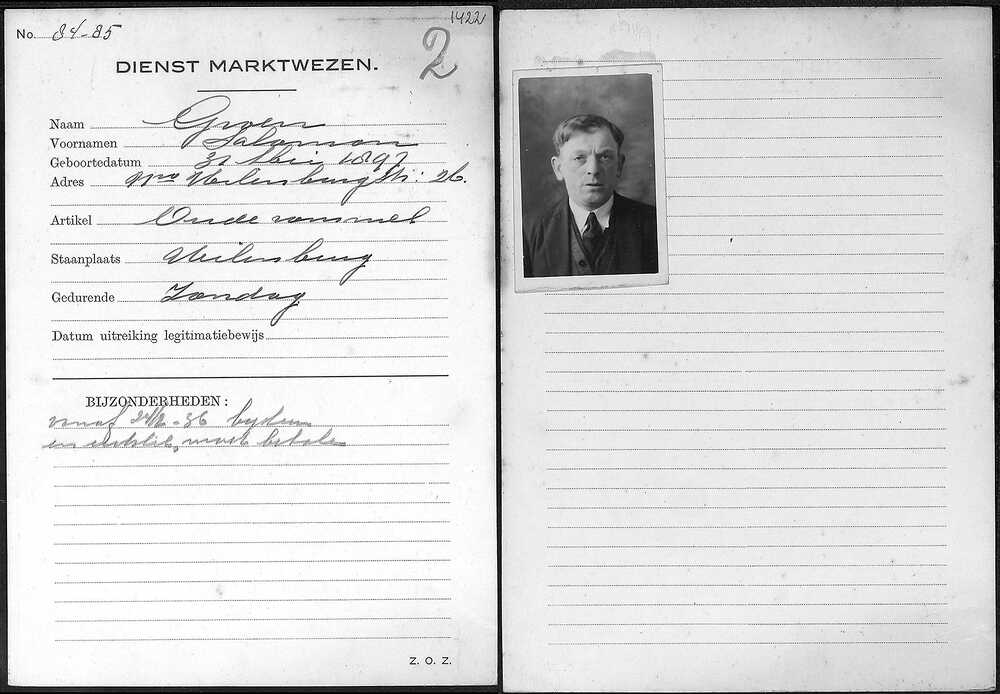 1422
No. 84-85
2
DIENST MARKTWEZEN.
Naam Groen
Voornamen Salomon
Geboortedatum 31 Mei 1897
Adres Nwe Uilenburgstr: 26.
Artikel Oude rommel
Staanplaats Uilenburg
Gedurende Zondag
Datum uitreiking legitimatiebewijs
BIJZONDERHEDEN:
vanaf 36
en betalen
Z. O. Z.